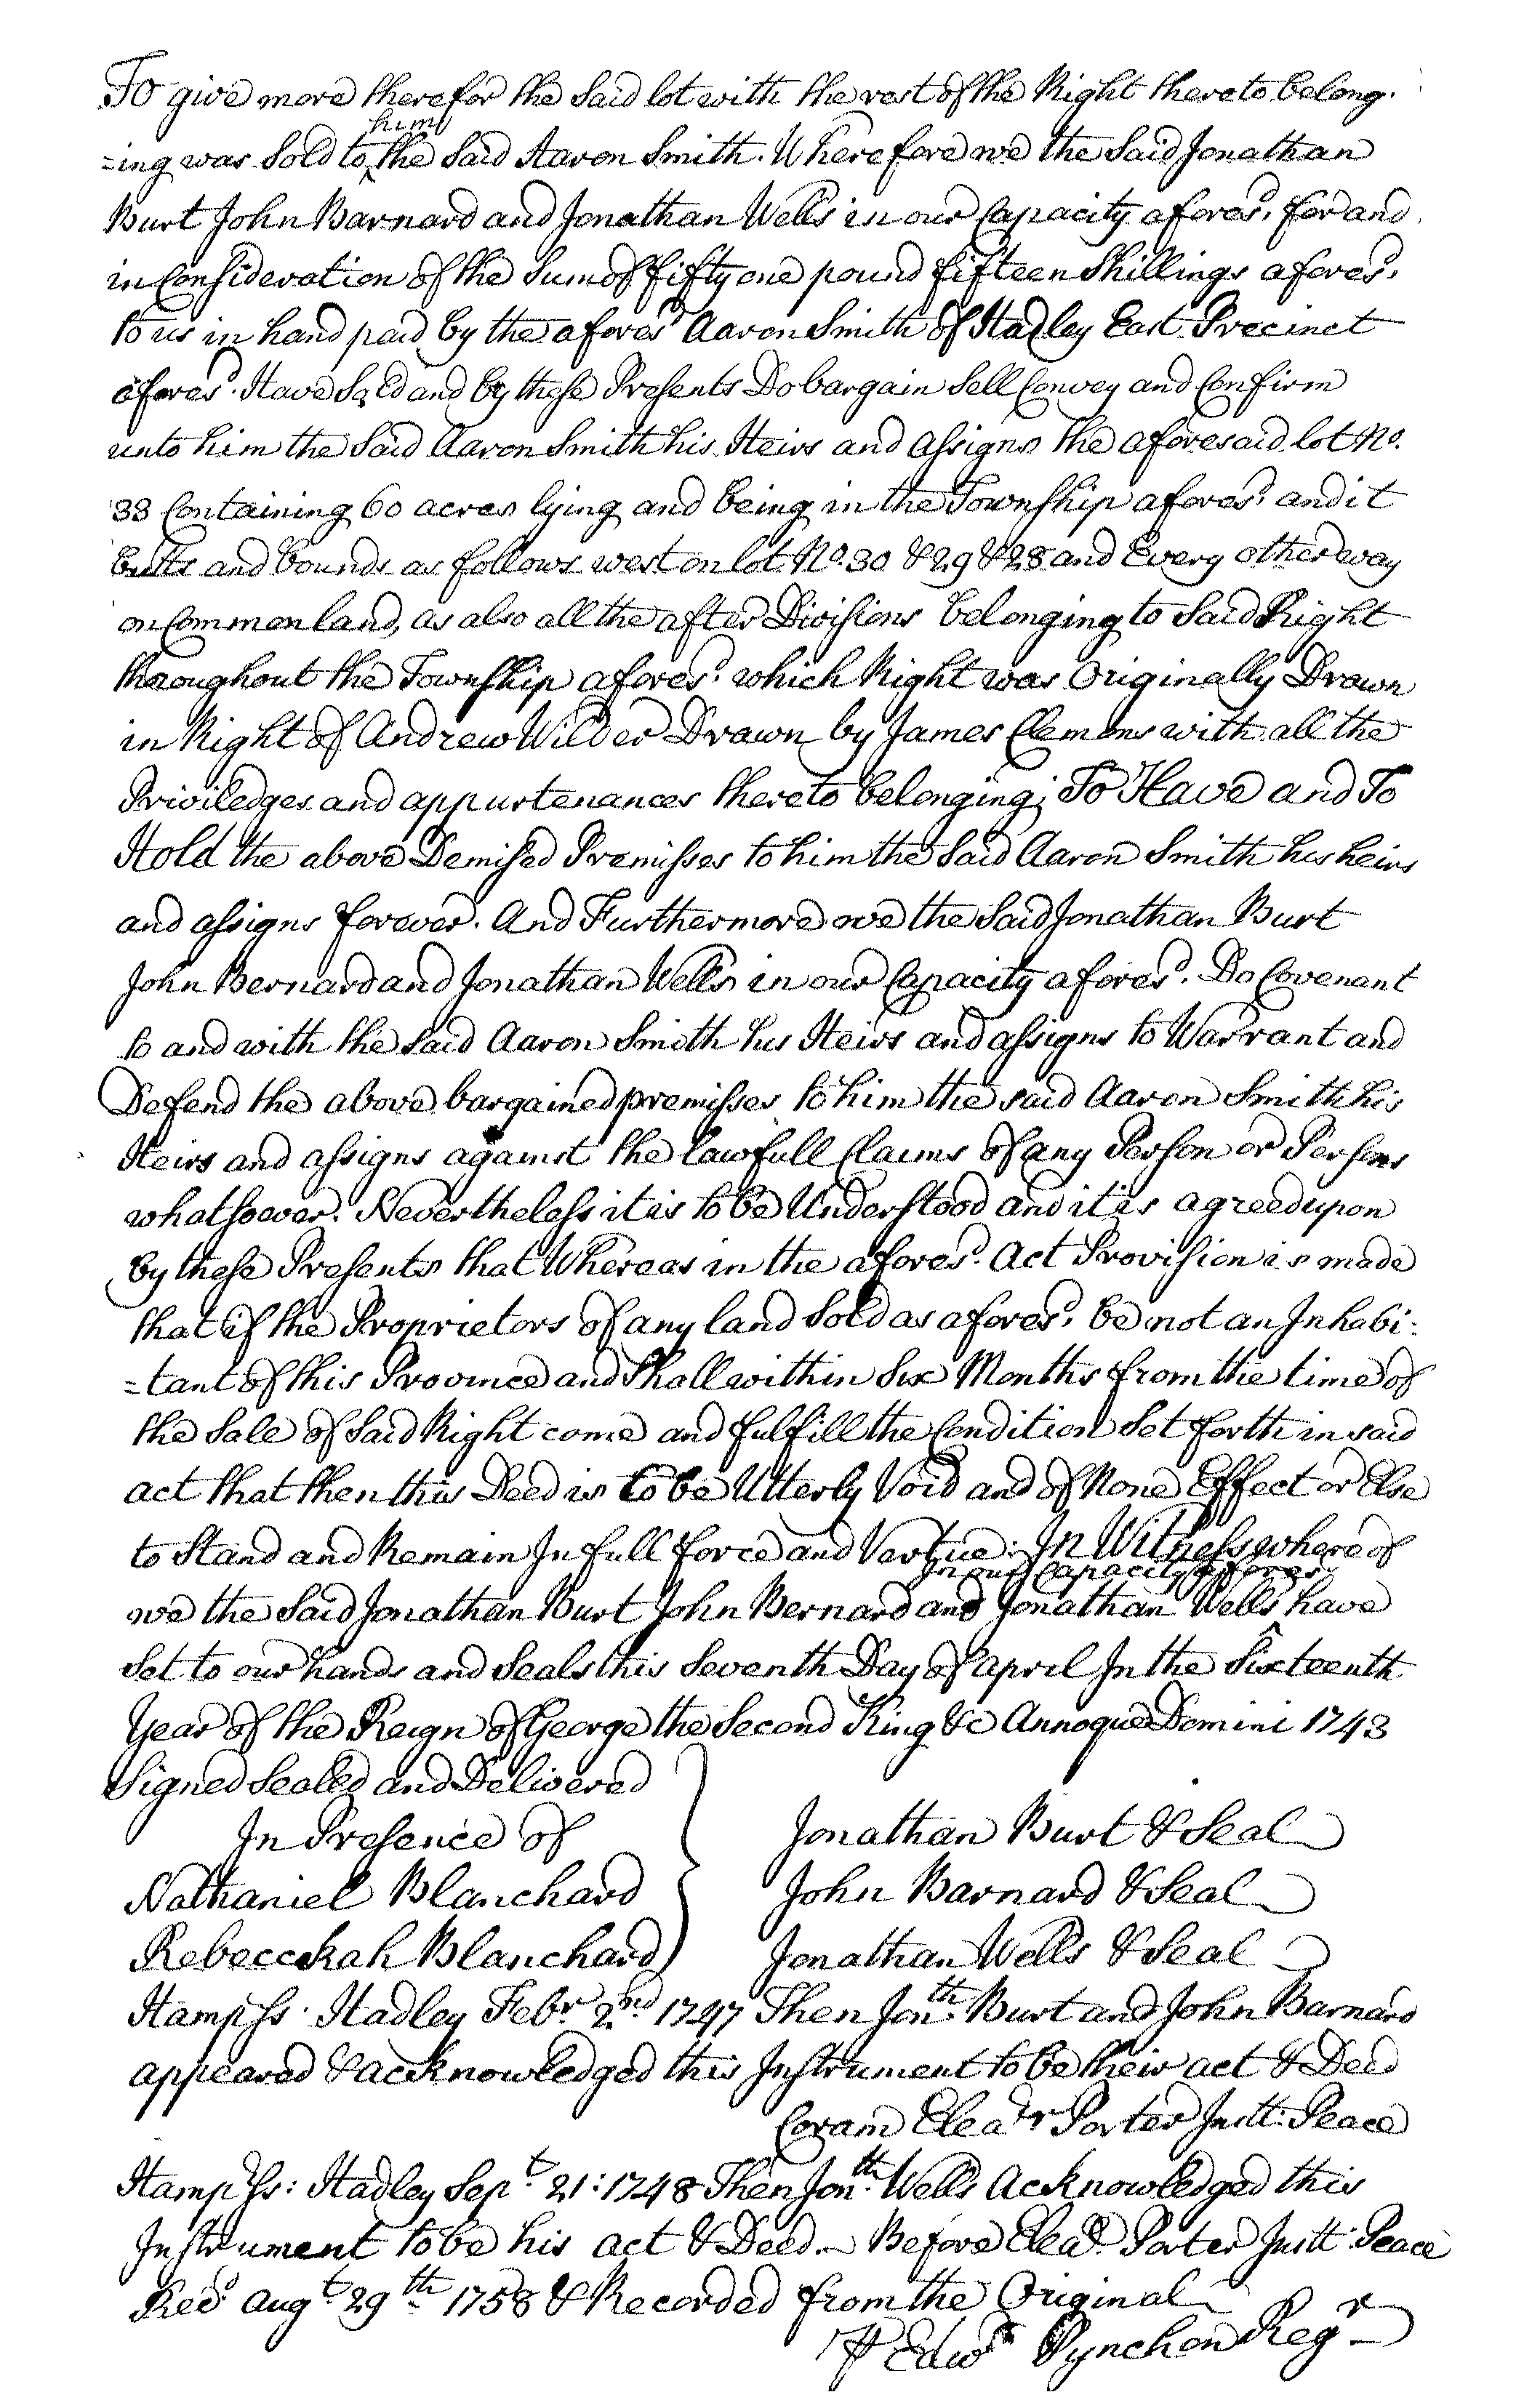 To give more therefor the Said lot with the rest of the Right thereto belong-
=ing was Sold to him the Said Aaron Smith. Wherefore we the Said Jonathan
Burt John Barnard and Jonathan Wells in our Capacity afores.d for and
in Consideration of the Sum of Fifty one pound fifteen Shillings afores.d
to us in hand paid by the afores.d Aaron Smith of Hadley East Precinct
afores.d Have Sold and by these Presents Do bargain Sell Convey and Confirm
unto him the Said Aaron Smith his Heirs and assigns the aforesaid lot No.
33 Containing 60 acres lying and being in the Township afores.d and it
butts and bounds as follows west on lot No. 30 & 29 & 28 and Every other way
on Common land, as also all the after Divisions belonging to Said Right
throughout the Township afores.d which Right was Originally Drawn
in Right of Andrew Wilder Drawn by James Clemens with all the
Priviledges and appurtenances thereto belonging; To Have and To
Hold the above Demised Premisses to him the Said Aaron Smith his heirs
and assigns forever. And Furthermore we the Said Jonathan Burt
John Bernard and Jonathan Wells in our Capacity afores.d Do Covenant
to and with the Said Aaron Smith his Heirs and assigns to Warrant and
Defend the above bargained premisses to him the said Aaron Smith his
Heirs and assigns against the lawfull Claims of any Person or Persons
whatsoever. Nevertheless it is to be Understood and it is agreed upon
by these Presents that Whereas in the afores.d Act Provision is made
that if the Proprietors of any land Sold as afores.d be not an Inhabi-
=tant of this Province and Shall within Six Months from the time of
the Sale of Said Right come and fulfill the Condition Set forth in said
act that then this Deed is to be Utterly Void and of None Effect or Else
to Stand and Remain In full force and Vertue: In Witness whereof
we the Said Jonathan Burt John Bernard and Jonathan Wells in our Capacity afores.d have
Set to our hands and Seals this Seventh Day of April In the Sixteenth
Year of the Reign of George the Second King &c Annoque Domini 1743
Signed Sealed and Delivered
In Presence of
Jonathan Burt & Seal
Nathaniel Blanchard
John Barnard & Seal
Rebeccekah Blanchard
Jonathan Wells & Seal
Hamp Ss. Hadley Febr. 2nd 1747 Then Jonth. Burt and John Barnard
appeared & acknowledged this Instrument to be their act & Deed
Coram Eleazr Porter Justt. Peace
Hamp Ss: Hadley Sept. 21: 1748 Then Jonth. Wells Acknowledged this
Instrument to be his act & Deed. Before Eleaz. Porter Justt. Peace
Recd. Augt. 29th. 1758 & Recorded from the Original
⅌ Edwd. Pynchon Regr